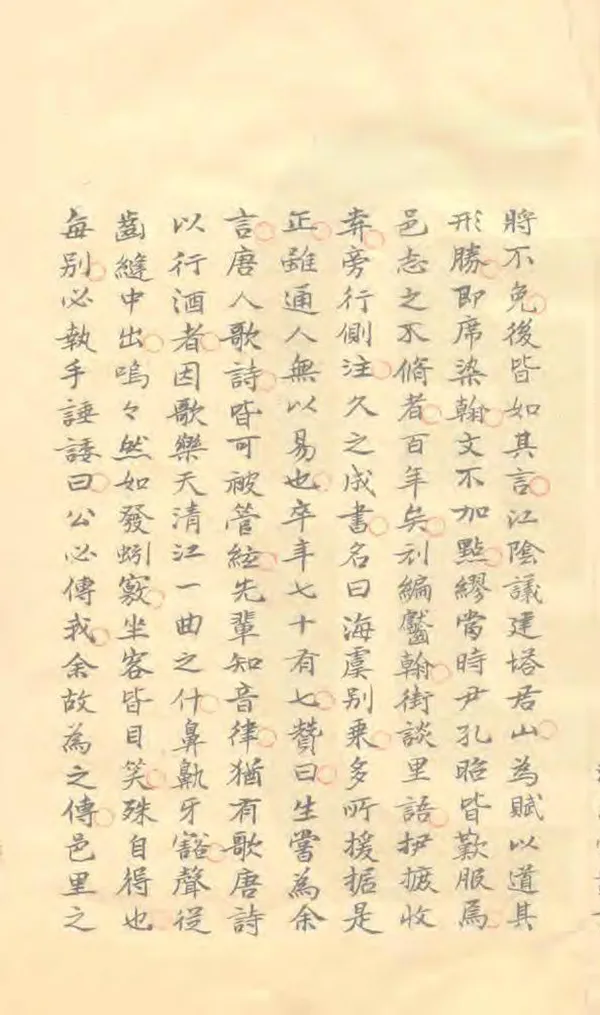 將不免後皆如其言江陰議建塔君山為賦以道其
形勝即席染翰文不加點繆當時尹孔昭皆歎服焉
邑志之不脩者百年矣刓編齾翰街談里語抈摭收
弆旁行側注久之成書名曰海虞别乗多所援据是
正雖通人無以易也卒年七十有七贊曰生嘗為余
言唐人歌詩皆可被管絃先輩知音律猶有歌唐詩
以行酒者因歌樂天清江一曲之什鼻鼽牙豁聲從
齒縫中出嗚々然如發蚓竅坐客皆目笑殊自得也
每别必執手諈諉曰公必傳我余故為之傳邑里之